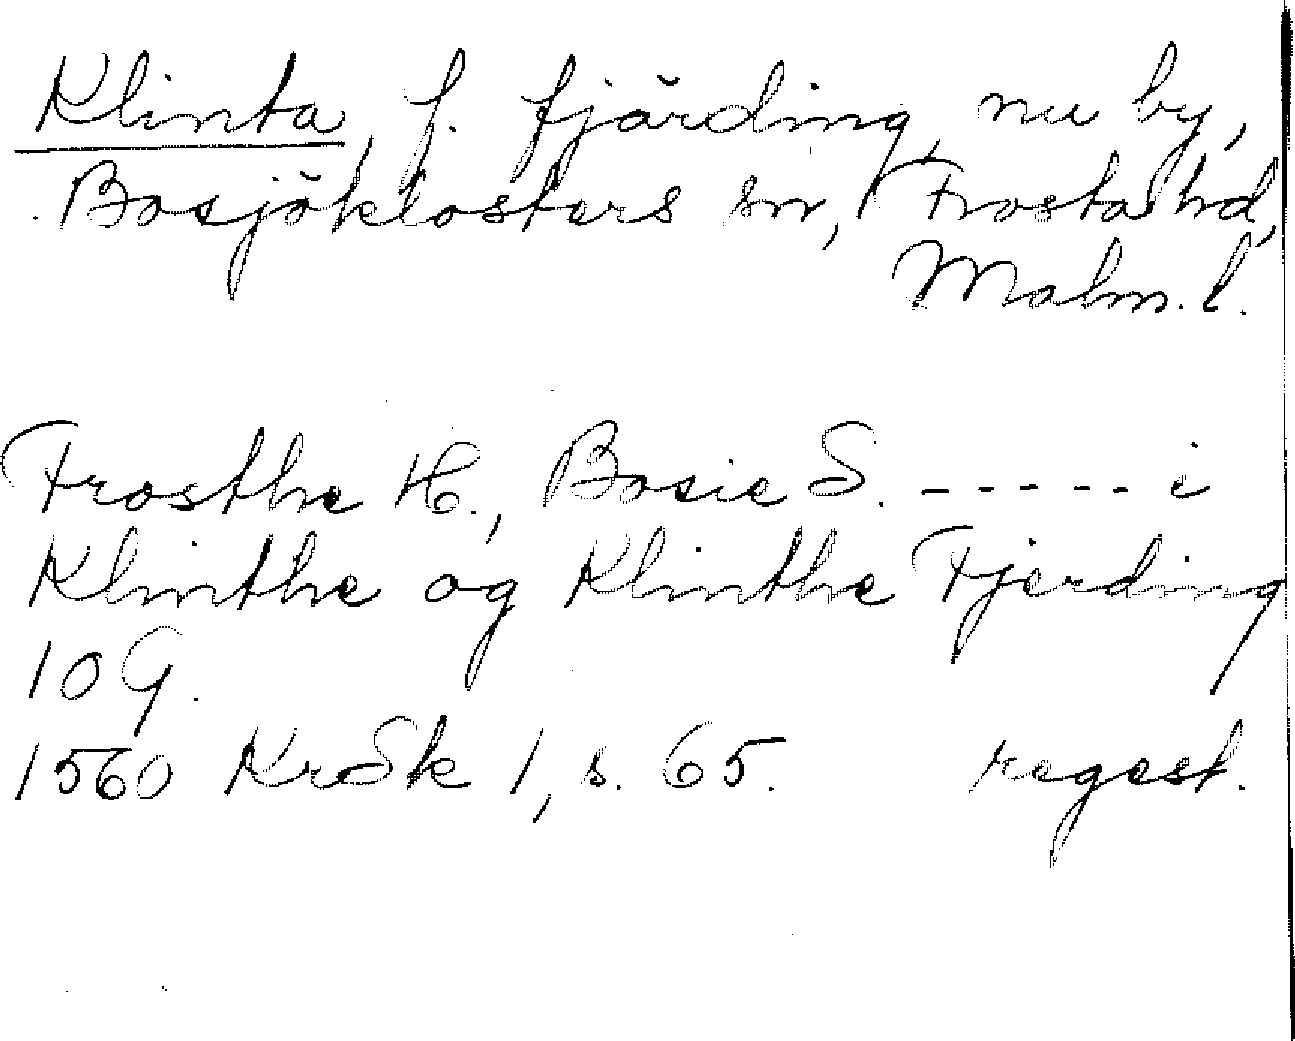 Klinta, f. fjärding, nu by,
Bosjöklosters sn, Frosta hd,
Malm. l.
Frosthe H., Bosie S. ----- i
Klinthe og Klinthe Fjerding
10 G.
1560 KrSk 1, s. 65. regest.